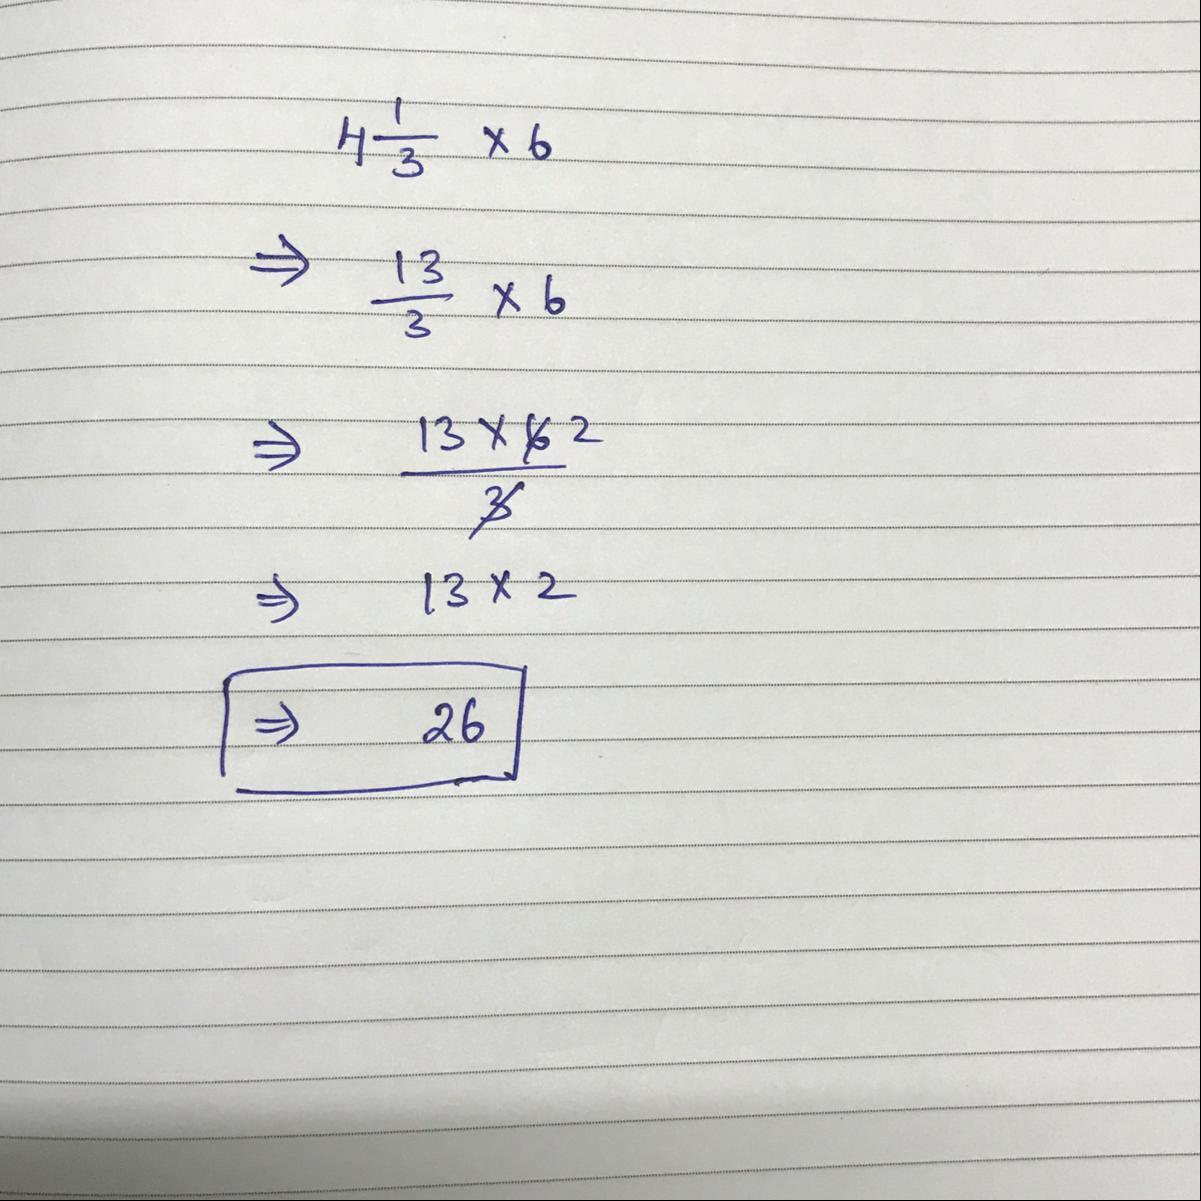 4 1/3 × 6
⇒ 13/3 × 6
⇒ 13 × 6 2 / 3
⇒ 13 × 2
⇒ 26